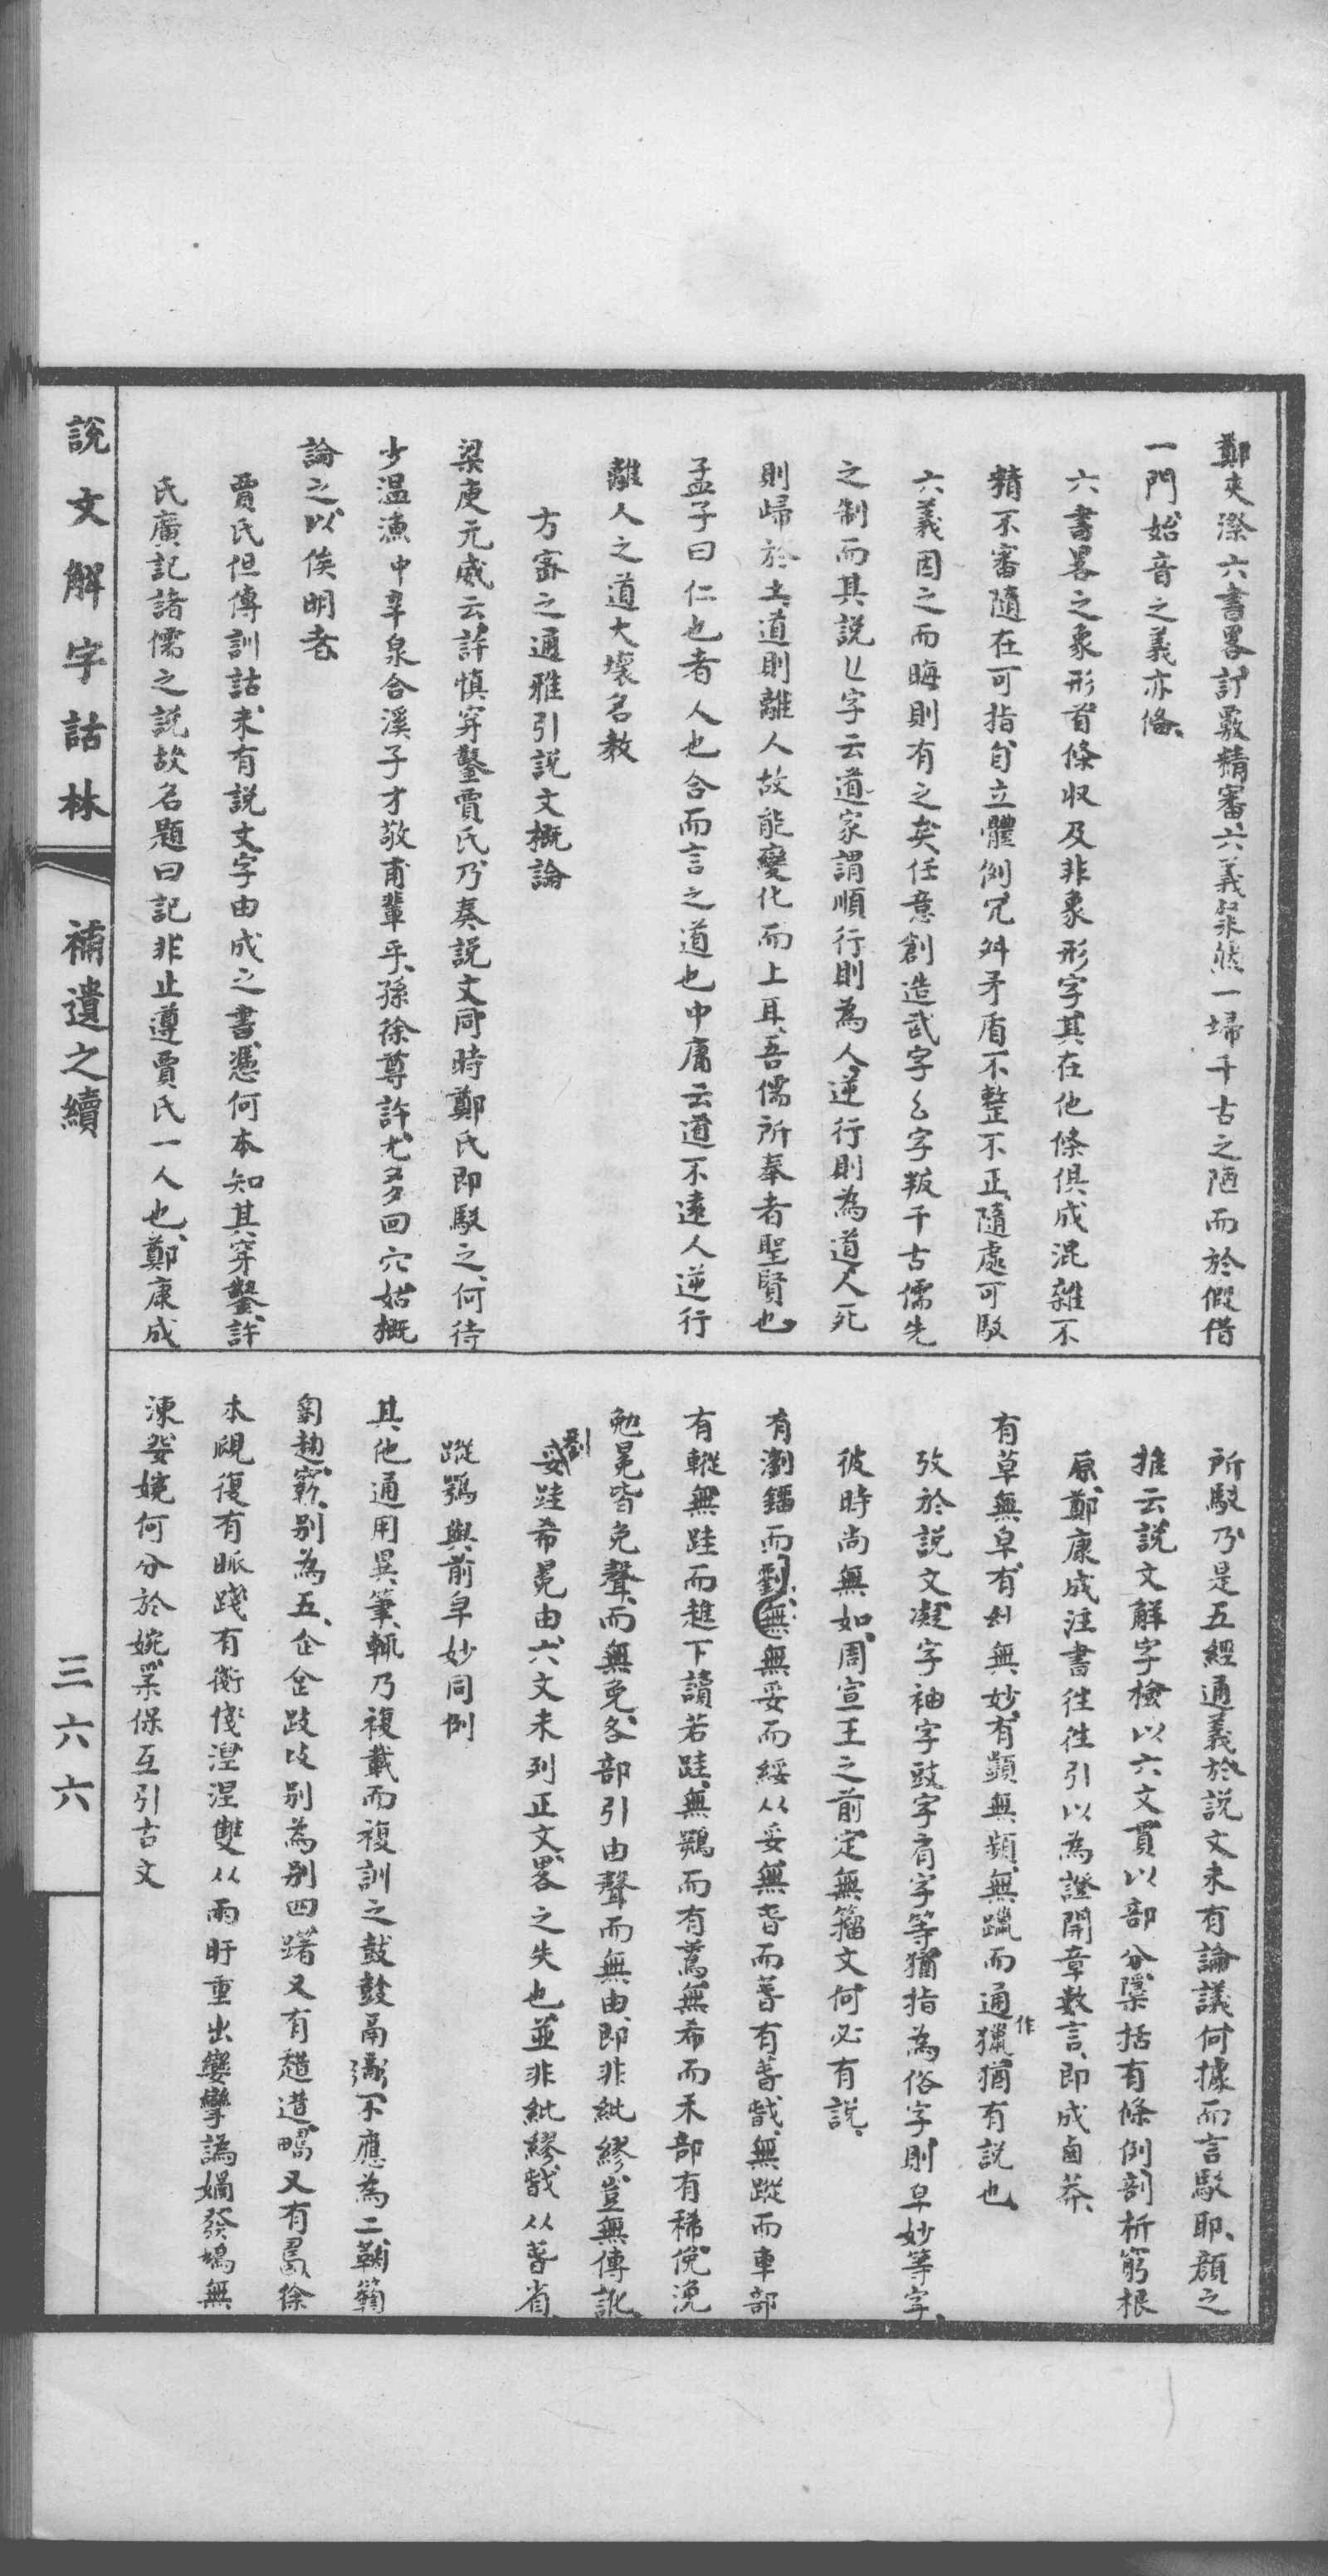 鄭夾漈六書畧討覈精審六義粲然一埽千古之陋而於假借
一門始音之義亦俻
六書畧之象形首條収及非象形字其在他條俱成混雜不
精不審隨在可指自立體例冗舛矛盾不整不正隨處可駁
六義因之而晦則有之矣任意創造武字乏字叛千古儒先
之制而其説匕字云道家謂順行則為人逆行則為道人死
則歸於土道則離人故能變化而上耳吾儒所奉者聖賢也
孟子曰仁也者人也合而言之道也中庸云道不遠人逆行
離人之道大壞名教
方密之通雅引説文概論
梁庾元威云許慎穿鑿賈氏乃奏説文同時鄭氏即駁之何待
少温漁中享泉合溪子才敬甫輩乎孫徐尊許尤多回穴姑概
論之以俟明者
賈氏但傳訓詁未有説文字由成之書憑何本知其穿鑿許
氏廣記諸儒之説故名題曰記非止遵賈氏一人也鄭康成
所駁乃是五經通義於説文未有論議何據而言駁耶顔之
推云説文解字檢以六文貫以部分檃括有條例剖析窮根
原鄭康成注書徃徃引以為證開章數言即成鹵莽
有草無皁有糾無妙有顥無顥無躐而通作獵猶有説也
攷於説文凝字袖字豉字肩字等猶指為俗字則皁妙等字
彼時尚無如周宣王之前定無籀文何必有説
有瀏鐂而劉無無妥而綏从妥無昝而蓍有蓍㦰無蹤而車部
有轍無跬而趌下讀若跬無鶚而有蔿無希而禾部有稀俛浼
勉冕皆免聲而無免各部引由聲而無由即非紕繆豈無傳訛
劉妥跬希冕由六文未列正文畧之失也並非紕繆㦰从蓍省
蹤鶚與前皁妙同例
其他通用異筆輒乃複載而複訓之鼓鼔鬲䰛不應為二鞠䈮
匊趜窾別為五企㐺跂歧別為別四躇又有䠂逪㗱又有冨徐
本䁂復有眽踐有衘俴湼涅雙从雨盱重出孌攣譌媧發鴆無
涷婜婉何分於婉采保互引古文
說文解字詁林
補遺之續
三六六